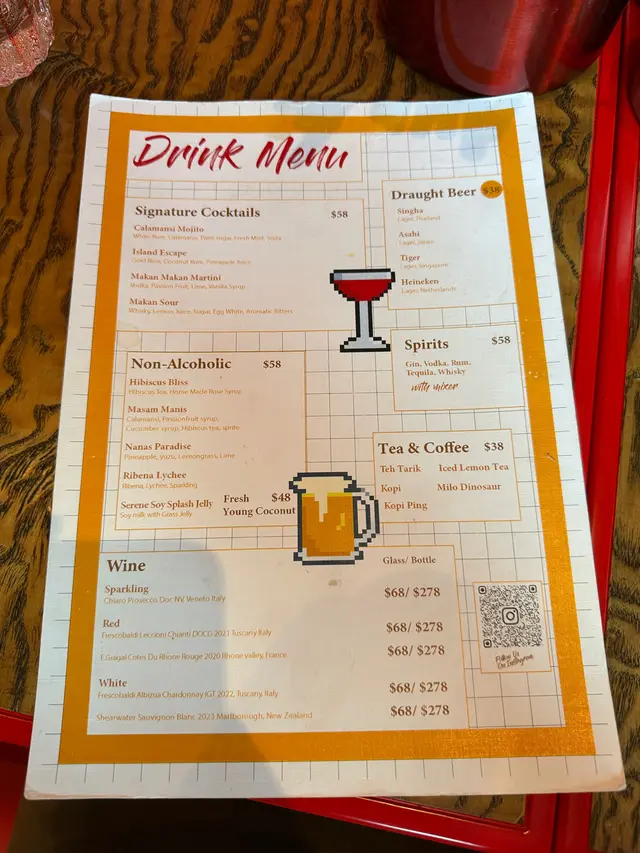 Drink Menu
Signature Cocktails $58
Calamansi Mojito
White Rum, Calamansi, Palm sugar, Fresh Mint, Soda
Island Escape
Gold Rum, Coconut Rum, Pineapple Juice
Makan Makan Martini
Vodka, Passion Fruit, Lime, Vanilla Syrup
Makan Sour
Whisky, Lemon Juice, Sugar, Egg White, Aromatic Bitters
Draught Beer $38
Singha
Lager, Thailand
Asahi
Lager, Japan
Tiger
Lager, Singapore
Heineken
Lager, Netherlands
Spirits $58
Gin, Vodka, Rum,
Tequila, Whisky
with mixer
Non-Alcoholic $58
Hibiscus Bliss
Hibiscus Tea, Home Made Rose Syrup
Masam Manis
Calamansi, Passionfruit syrup,
Cucumber syrup, Hibiscus tea, sprite
Nanas Paradise
Pineapple, yuzu, Lemongrass, Lime
Ribena Lychee
Ribena, Lychee, Sparkling
Serene Soy Splash Jelly
Soy milk with Grass Jelly
Fresh $48
Young Coconut
Tea & Coffee $38
Teh Tarik Iced Lemon Tea
Kopi Milo Dinosaur
Kopi Ping
Wine Glass/ Bottle
Sparkling
Chiaro Prosecco Doc NV, Veneto Italy $68/ $278
Red
Frescobaldi Leccioni Chianti DOCG 2021 Tuscany Italy $68/ $278
E.Guigal Cotes Du Rhone Rouge 2020 Rhone valley, France $68/ $278
White
Frescobaldi Albizzia Chardonnay IGT 2022, Tuscany, Italy $68/ $278
Shearwater Sauvignon Blanc 2023 Marlborough, New Zealand $68/ $278
Follow Us
On Instagram